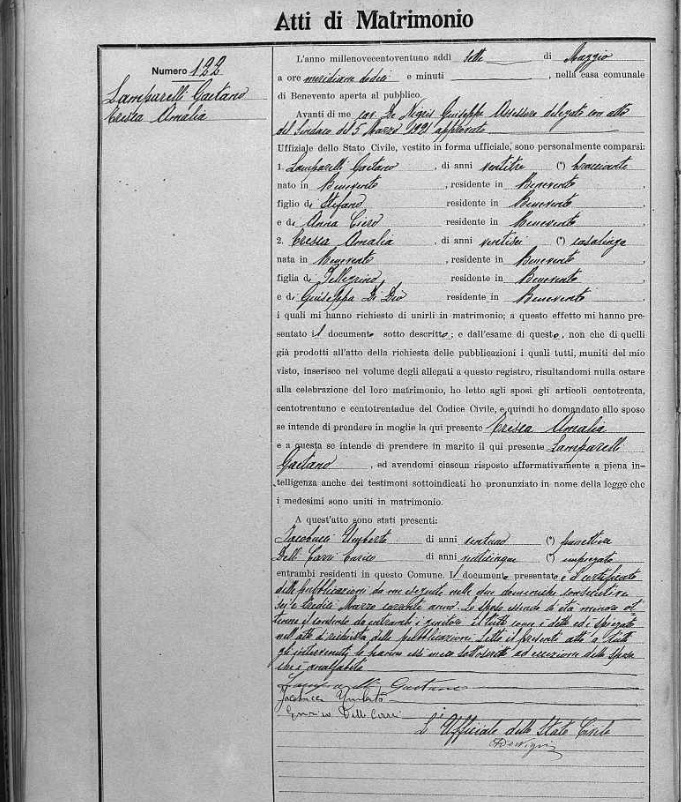 Atti di Matrimonio
Numero 122
Lamparelli Gaetano
Cresca Amalia
L'anno millenovecentoventuno addì sette di Maggio
a ore meridiane dodici e minuti , nella casa comunale
di Benevento aperta al pubblico.
Avanti di me cav. De Nigris Giuseppe Assessore delegato con atto
del Sindaco del 5 Marzo 1921 approvato
Uffiziale dello Stato Civile, vestito in forma ufficiale, sono personalmente comparsi:
1. Lamparelli Gaetano , di anni ventitre (*) bracciante
nato in Benevento , residente in Benevento ,
figlio di Stefano residente in Benevento ,
e di Anna Ciero residente in Benevento ,
2. Cresca Amalia , di anni ventisei (*) casalinga
nata in Benevento , residente in Benevento ,
figlia di Pellegrino residente in Benevento ,
e di Giuseppa Di Dio residente in Benevento ,
i quali mi hanno richiesto di unirli in matrimonio; a questo effetto mi hanno pre-
sentato il documento sotto descritto; e dall'esame di questo, non che di quelli
già prodotti all'atto della richiesta delle pubblicazioni i quali tutti, muniti del mio
visto, inserisco nel volume degli allegati a questo registro, risultandomi nulla ostare
alla celebrazione del loro matrimonio, ho letto agli sposi gli articoli centotrenta,
centotrentuno e centotrentadue del Codice Civile, e quindi ho domandato allo sposo
se intende di prendere in moglie la qui presente Cresca Amalia
e a questa se intende di prendere in marito il qui presente Lamparelli
Gaetano , ed avendomi ciascun risposto affermativamente a piena in-
telligenza anche dei testimoni sottoindicati ho pronunziato in nome della legge che
i medesimi sono uniti in matrimonio.
A quest'atto sono stati presenti:
Jacobucci Umberto di anni ventuno (*)
Delli Carri Enrico di anni venticinque (*) impiegato
entrambi residenti in questo Comune. Il documento presentato è il certificato
delle pubblicazioni da me eseguite nelle due domeniche consecutive
sei e tredici Marzo corrente anno. Lo sposo essendo di età minore ot
tenne il consenso da entrambi i genitori il tutto come è detto ed è spiegato
nell'atto di richiesta delle pubblicazioni. Letto il presente atto a tutti
gli intervenuti, lo hanno essi meco sottoscritto ad eccezione della sposa
che è analfabeta
Lamparelli Gaetano
Jacobucci Umberto
Enrico Delli Carri
L'Ufficiale dello Stato Civile
DeNigris